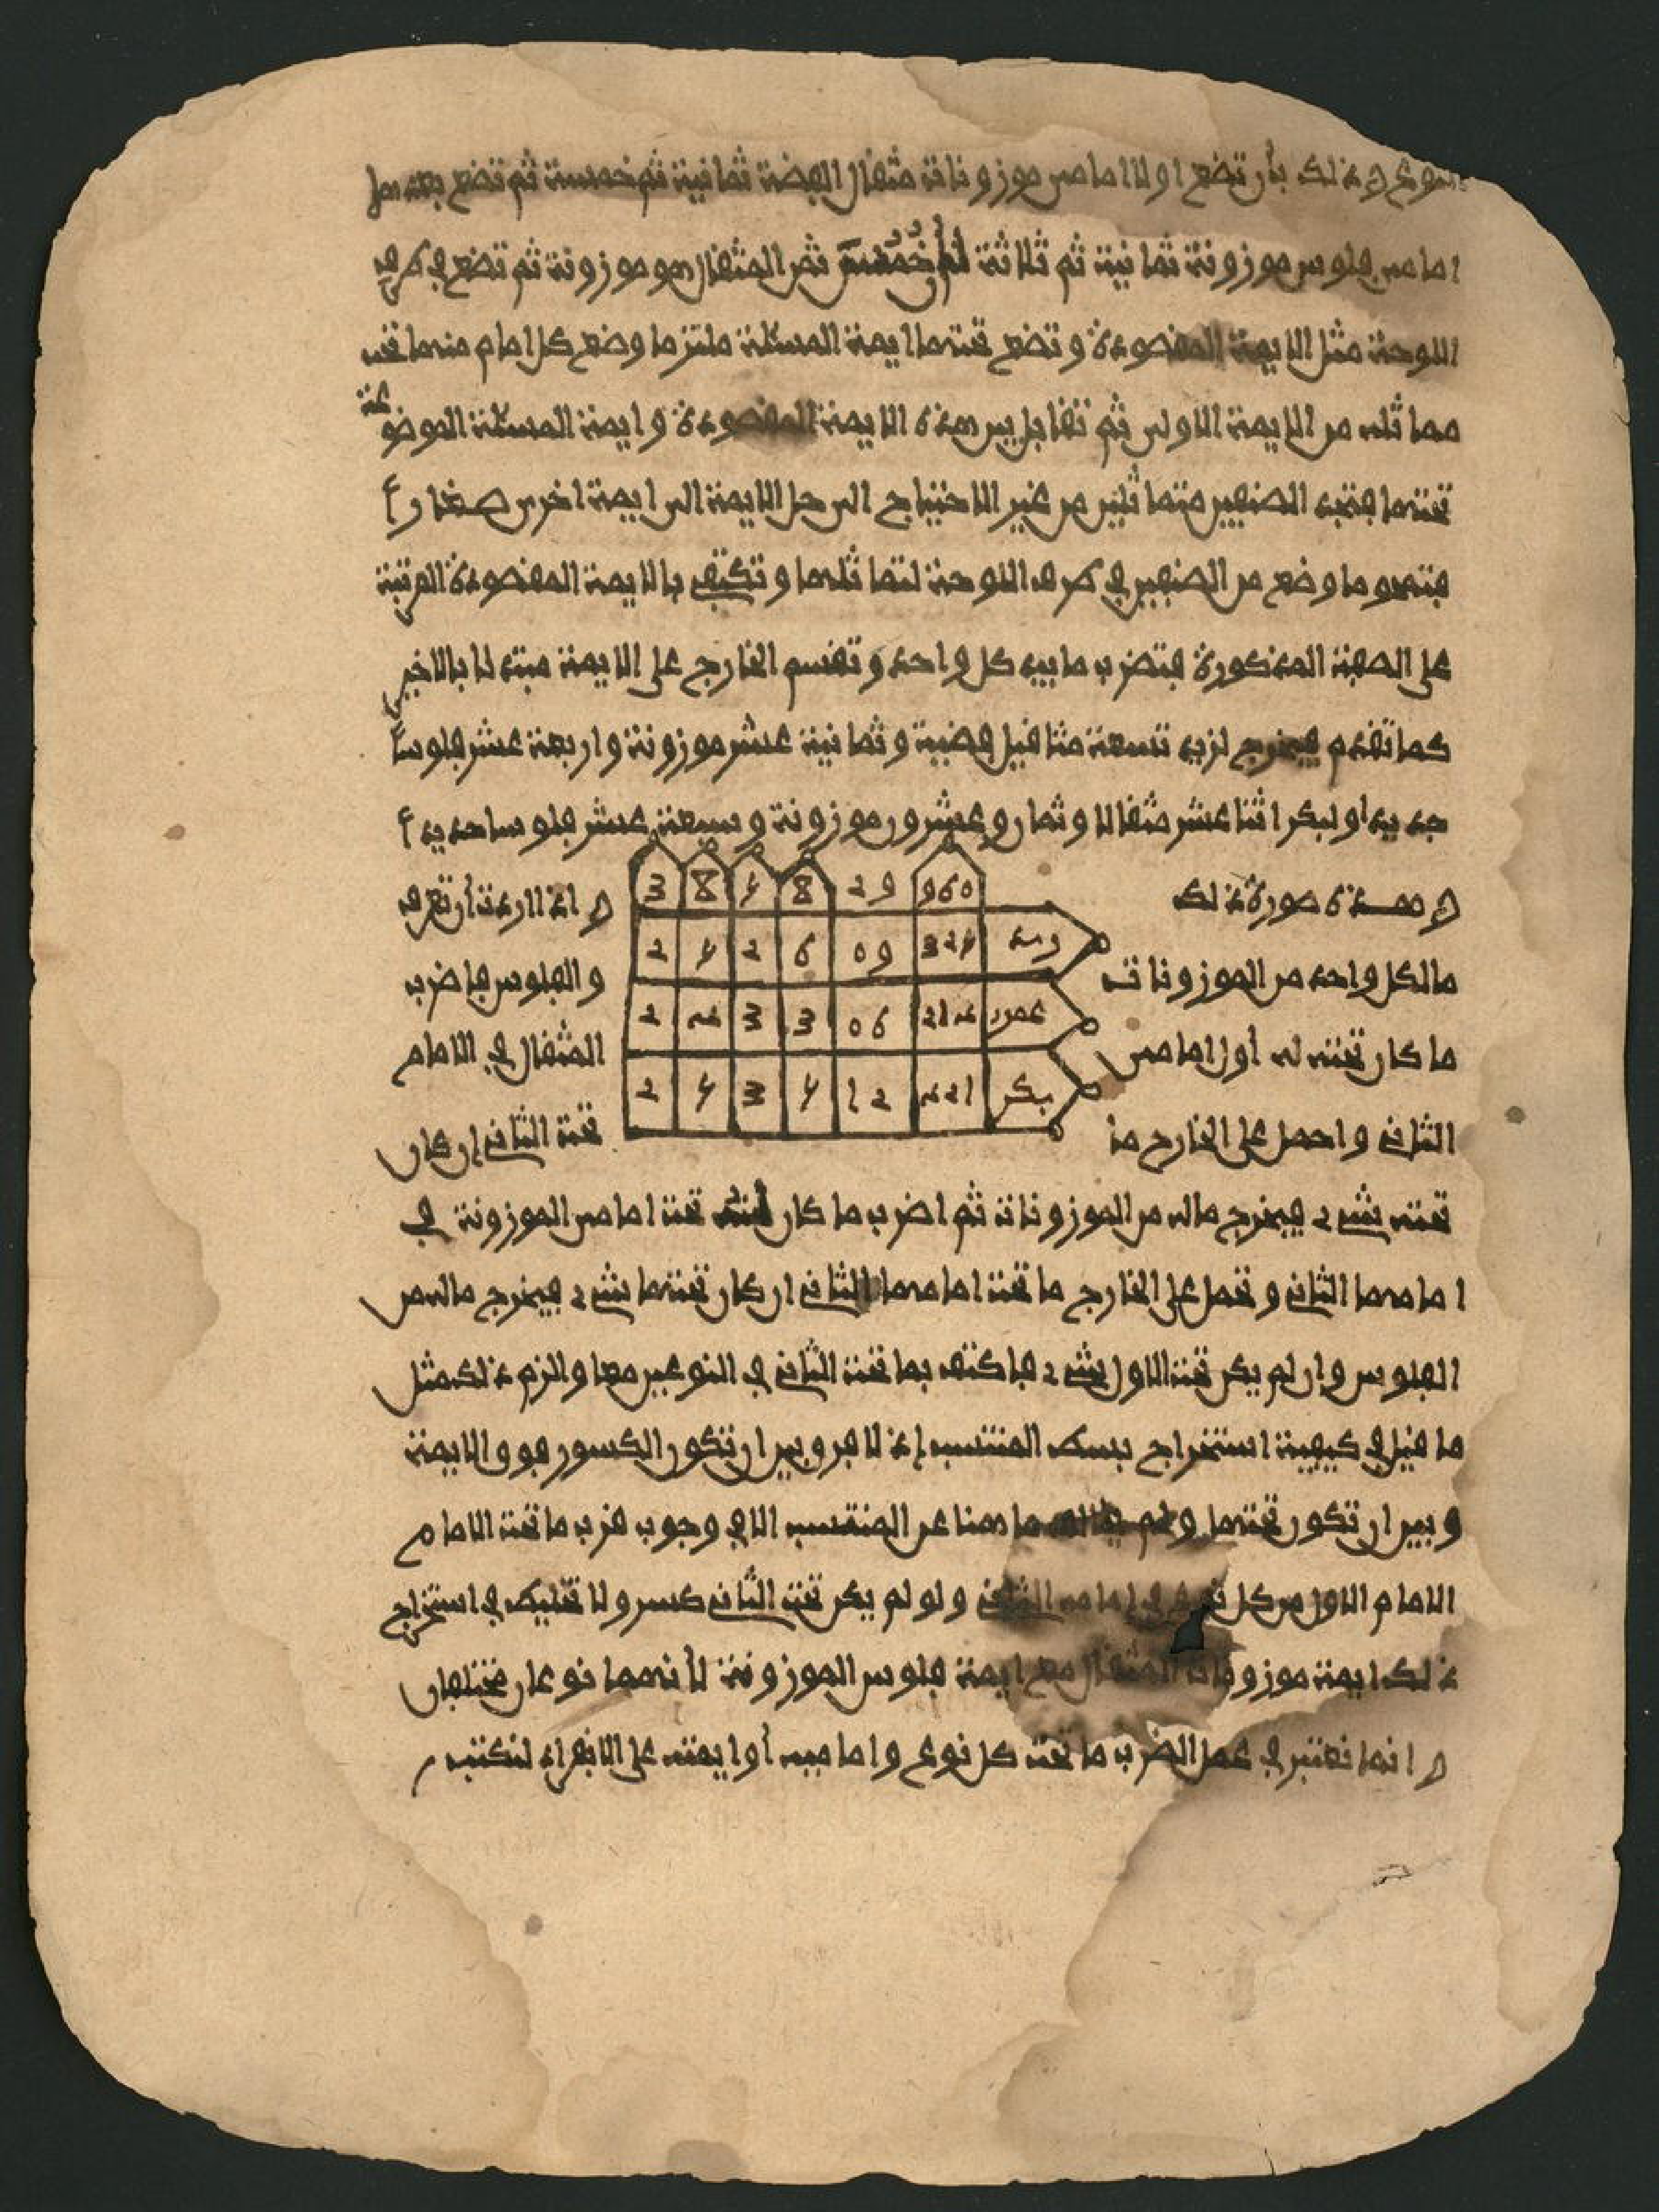 وذلك بأن تضع اولا امامى موزونات مثقال الفضة ثمانية ثم خمسة ثم تضع بعدهما
امامى فلوس موزونة ثمانية ثم ثلاثة ثمن المثقال هو موزونة ثم تضع في طرف
اللوحة مثل الايمة المفضودة وتضع تحتها ايمة المسئلة ملتزما وضع كل امام منها تحت
مماثله من الايمة الاولى ثم تقابل بين هذه الايمة المفضودة وايمة المسئلة الموضوعة
تحتها فتجد الصنفين متماثلين من غير الاحتياج الى حل الايمة الى ايمة اخرى صغار
فتمحو ما وضع من الصنفين في طرف اللوحة لتماثلها وتكتفى بالايمة المفضودة المرتبة
على الصفة المذكورة فتضرب ما بيد كل واحد وتقسم الخارج على الايمة مبتدئا بالاخير
كما تقدم فيخرج لزيد تسعة مثاقيل فضية وثمانية عشر موزونة واربعة عشر فلوسا
اولبكر اثنا عشر مثقالا وثمان وعشرون موزونة وسبعة عشر فلوسا
وهذه صورة ذلك
3 8 4 8 29 960
2 4 2 6 09 324 زيد
2 3 3 06 عمرو
2 4 3 4 12 بكر
واذا اردت أن تعرف
مالكل واحد من الموزونات والفلوس فاضرب
ما كان تحته له أول امامى المثقال في الامام
الثانى واحمل على الخارج ما تحت الثانى إن كان
تحته شىء فيخرج ماله من الموزونات ثم اضرب ما كان تحت امامى الموزونة في
امامها الثانى وتحمل على الخارج ما تحت امامها الثانى ان كان تحتها شىء فيخرج ماله من
الفلوس وان لم يكن تحت الاول شىء فاكتف بما تحت الثانى في النوعين معا والزم ذلك مثل
ما قيل في كيفية استخراج بسط المنتسب إذ لا فرق بين ان تكون الكسور فوق الايمة
وبين ان تكون تحتها ولم ما هنا عن المنتسب الا في وجوب ضرب ما تحت الامام
الامام الاول من كل نوع في امامه الثانى ولو لم يكن تحت الثانى كسر ولا تخليط في استخراج
ذلك ايمة موزونات المثقال مع ايمة فلوس الموزونة لأنهما نوعان مختلفان
وانما نعتبر في عمل الضرب ما تحت كل نوع وامامه أو ايمته على الانفراد لنكتب